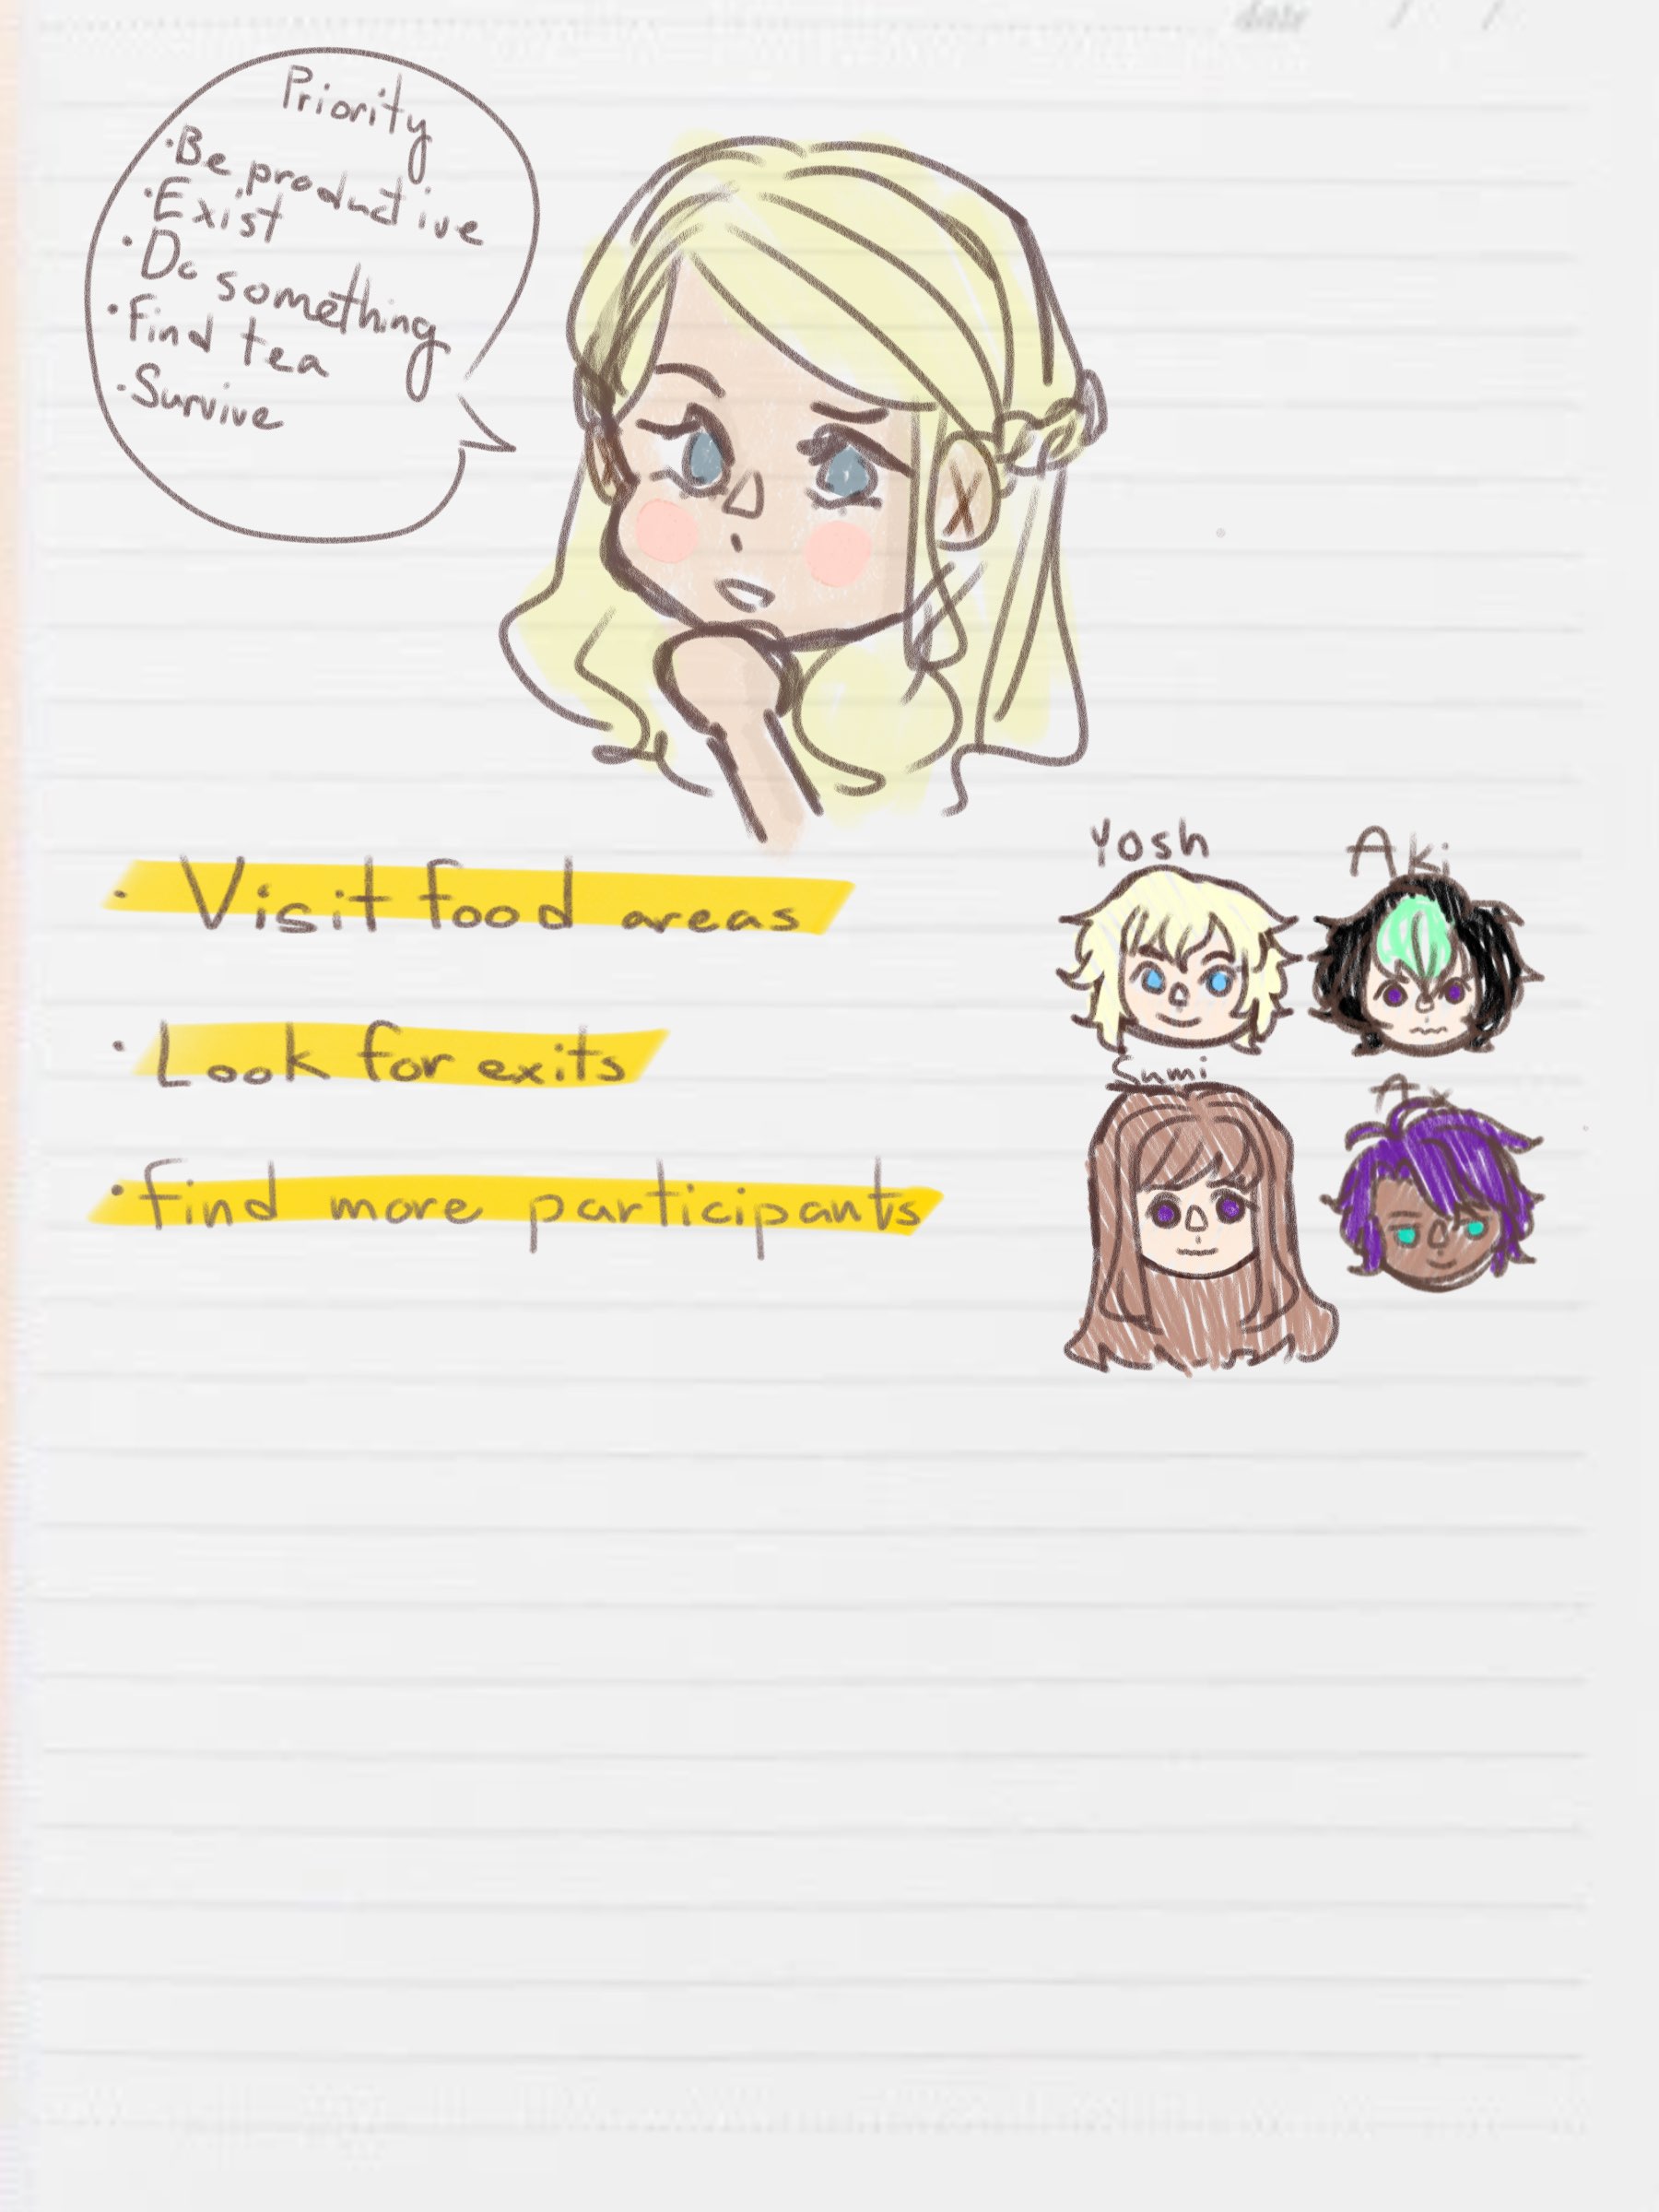 date / /
Priority
·Be productive
·Exist
·Do something
·Find tea
·Survive
· Visit food areas
· Look for exits
· Find more participants
Yosh
Aki
Sumi
Ax